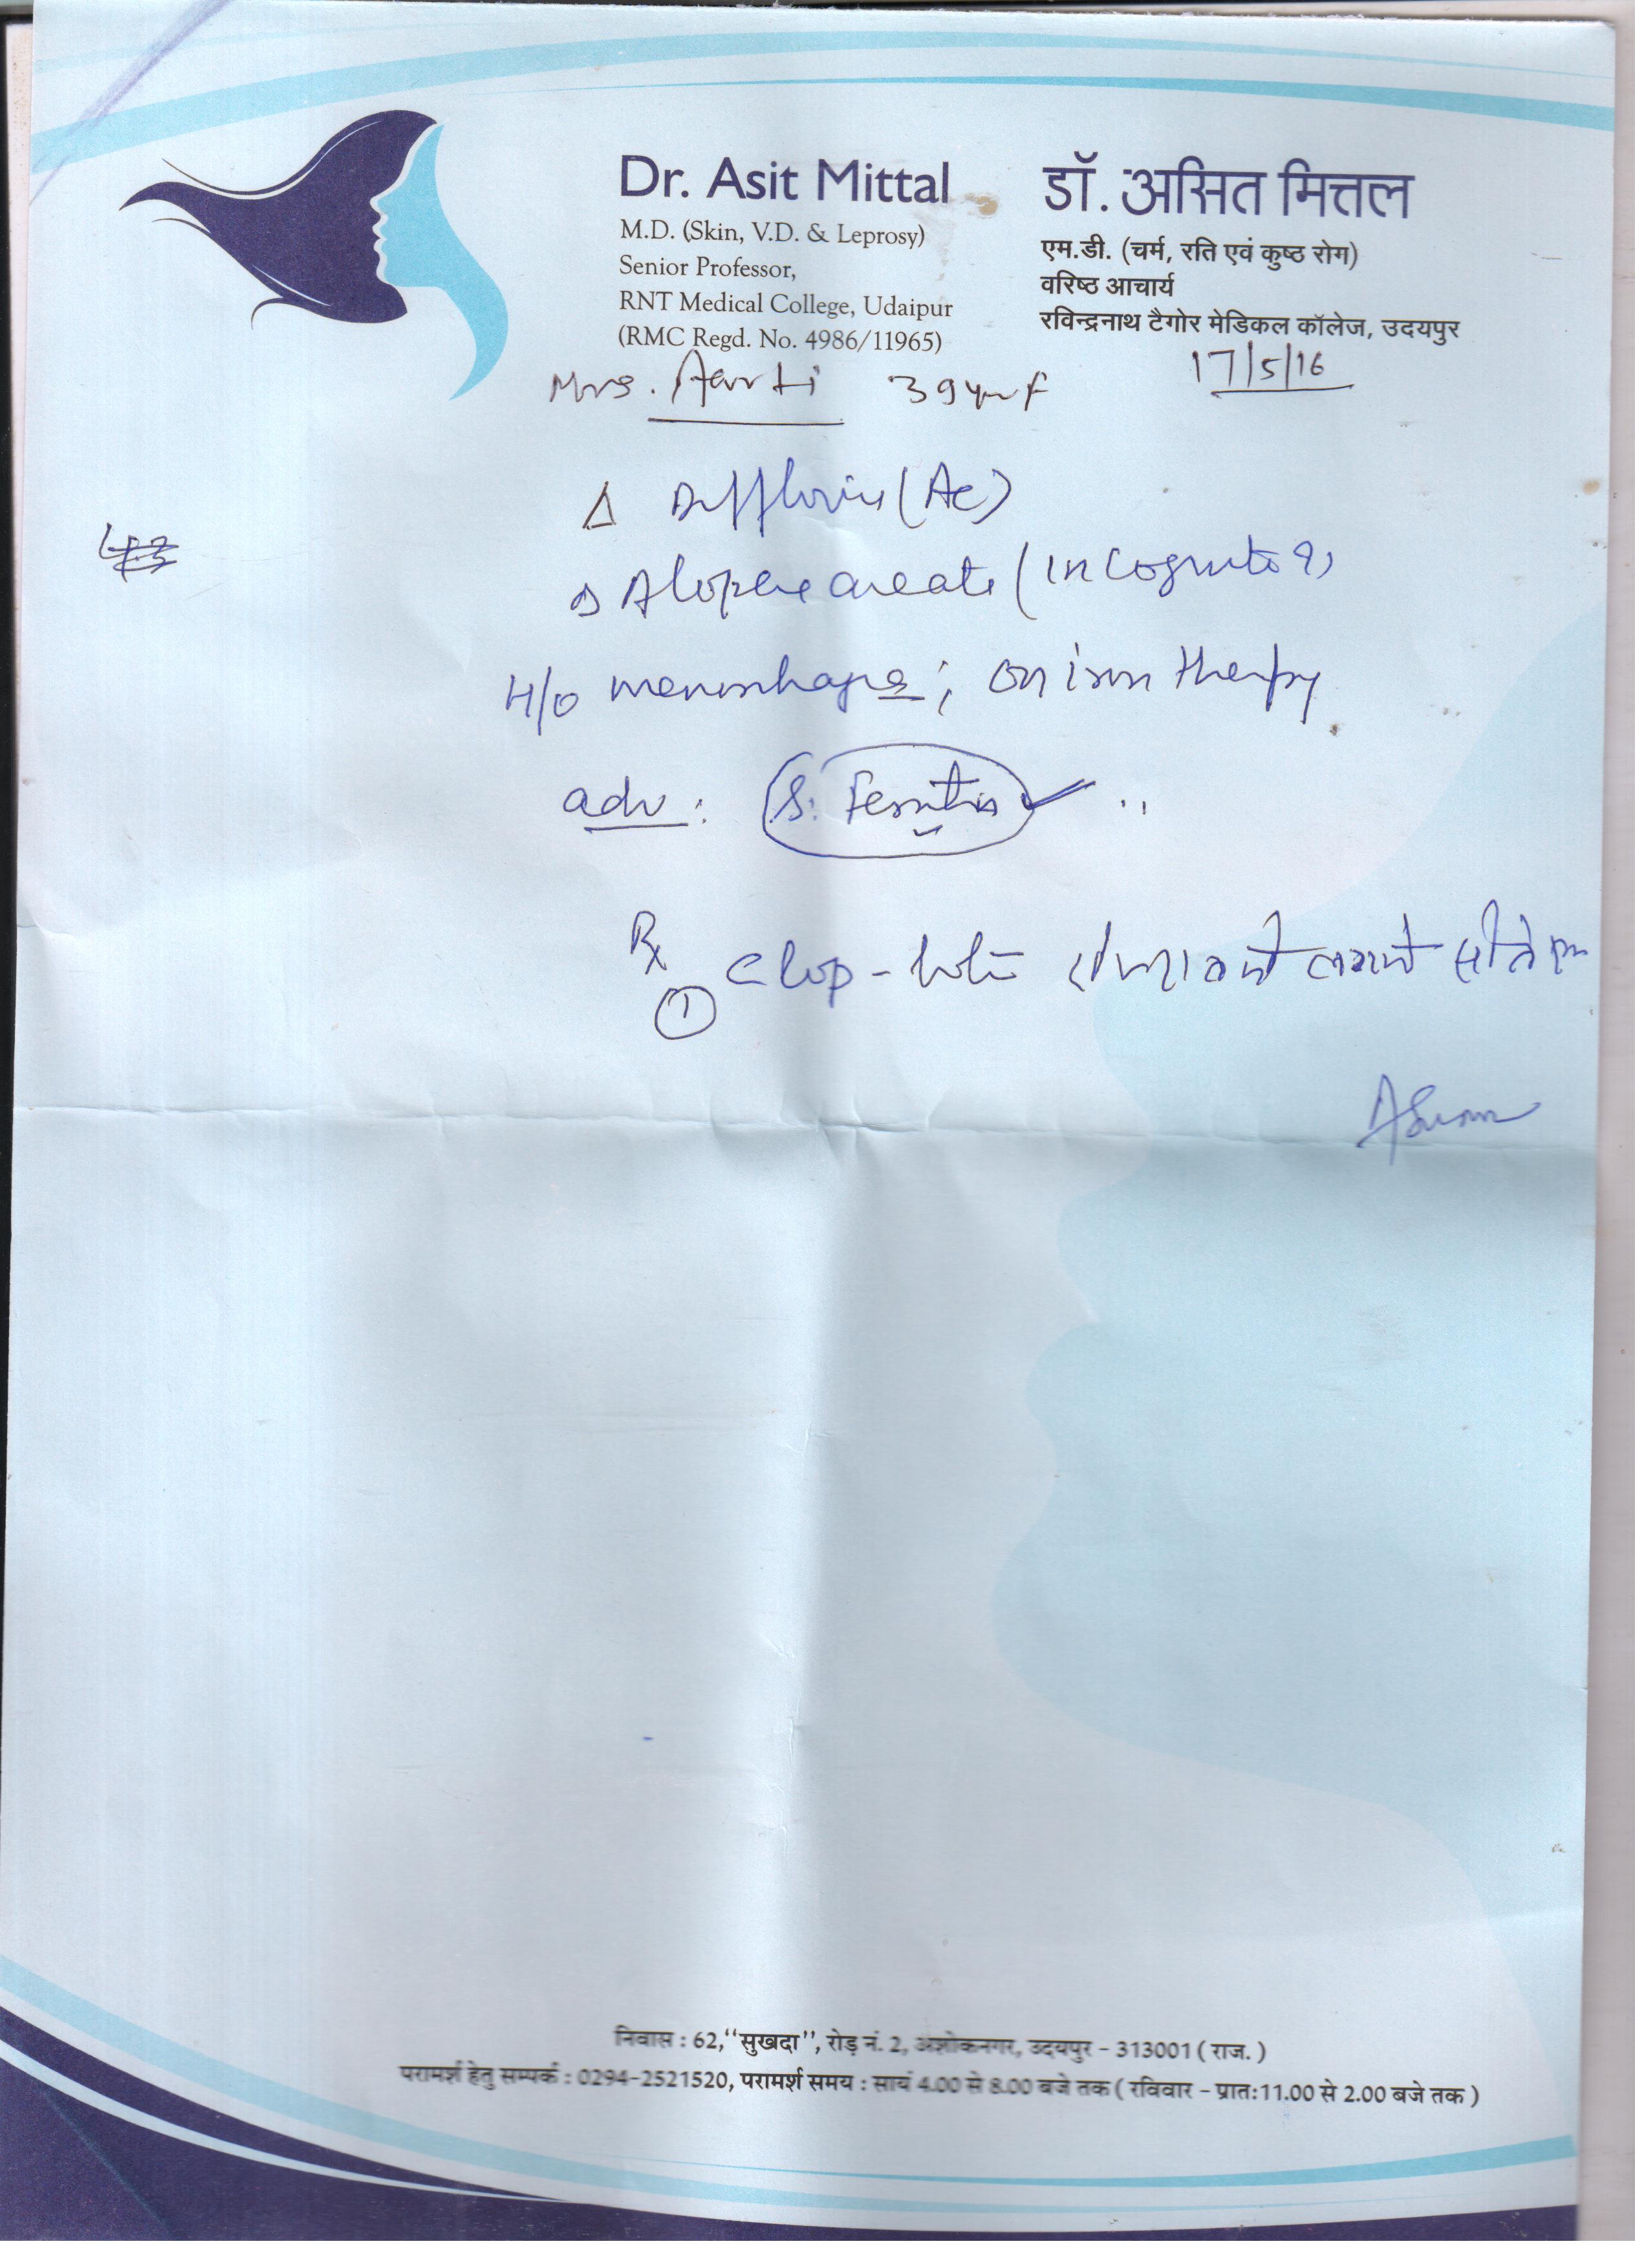 Dr. Asit Mittal
M.D. (Skin, V.D. & Leprosy)
Senior Professor,
RNT Medical College, Udaipur
(RMC Regd. No. 4986/11965)
डॉ. असित मित्तल
एम.डी. (चर्म, रति एवं कुष्ठ रोग)
वरिष्ठ आचार्य
रविन्द्रनाथ टैगोर मेडिकल कॉलेज, उदयपुर
17/5/16
Mrs. Aarti 39 yr F
Δ
Alopecia areata (incognito ?)
H/o menorrhagia; on iron therapy
adv: S. Ferritin
Rx
① lotion
निवास : 62,‘‘सुखदा’’, रोड़ नं. 2, अशोकनगर, उदयपुर - 313001 ( राज. )
परामर्श हेतु सम्पर्क : 0294-2521520, परामर्श समय : सायं 4.00 से 8.00 बजे तक ( रविवार - प्रातः11.00 से 2.00 बजे तक )